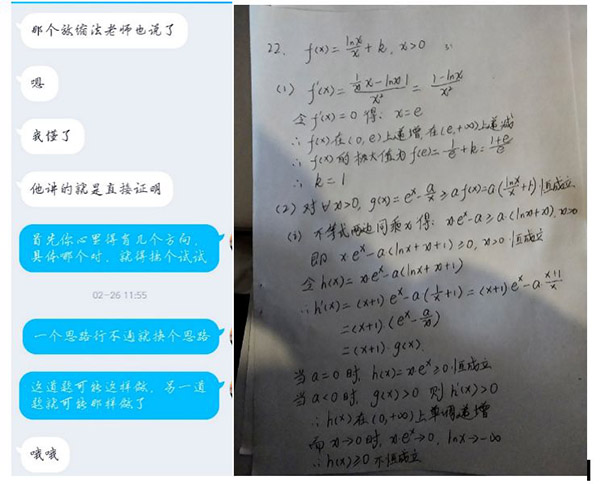 那个放缩法老师也说了
嗯
我懂了
他讲的就是直接证明
首先你心里得有几个方向，
具体哪个对，就得挨个试试
02-26 11:55
一个思路行不通就换个思路
这道题可能这样做，另一道
题就可能那样做了
哦哦
22. f(x)=lnx/x+k, x>0
(1) f'(x)=(1/x·x-lnx·1)/x²=(1-lnx)/x²
令f'(x)=0得: x=e
∴f(x)在(0,e)上递增,在(e,+∞)上递减
∴f(x)的极大值为f(e)=1/e+k=(1+e)/e
∴k=1
(2) 对∀x>0, g(x)=e^x-a/x≥af(x)=a(lnx/x+1)恒成立
不等式两边同乘x得: x·e^x-a≥a·(lnx+x), x>0
即 x·e^x-a(lnx+x+1)≥0, x>0恒成立
令h(x)=x·e^x-a(lnx+x+1)
∴h'(x)=(x+1)e^x-a(1/x+1)=(x+1)e^x-a·(x+1)/x
=(x+1)·(e^x-a/x)
=(x+1)·g(x)
当a=0时, h(x)=x·e^x≥0恒成立
当a<0时, g(x)>0 则h'(x)>0
∴h(x)在(0,+∞)上单调递增
而x→0时, x·e^x→0, lnx→-∞
∴h(x)≥0不恒成立